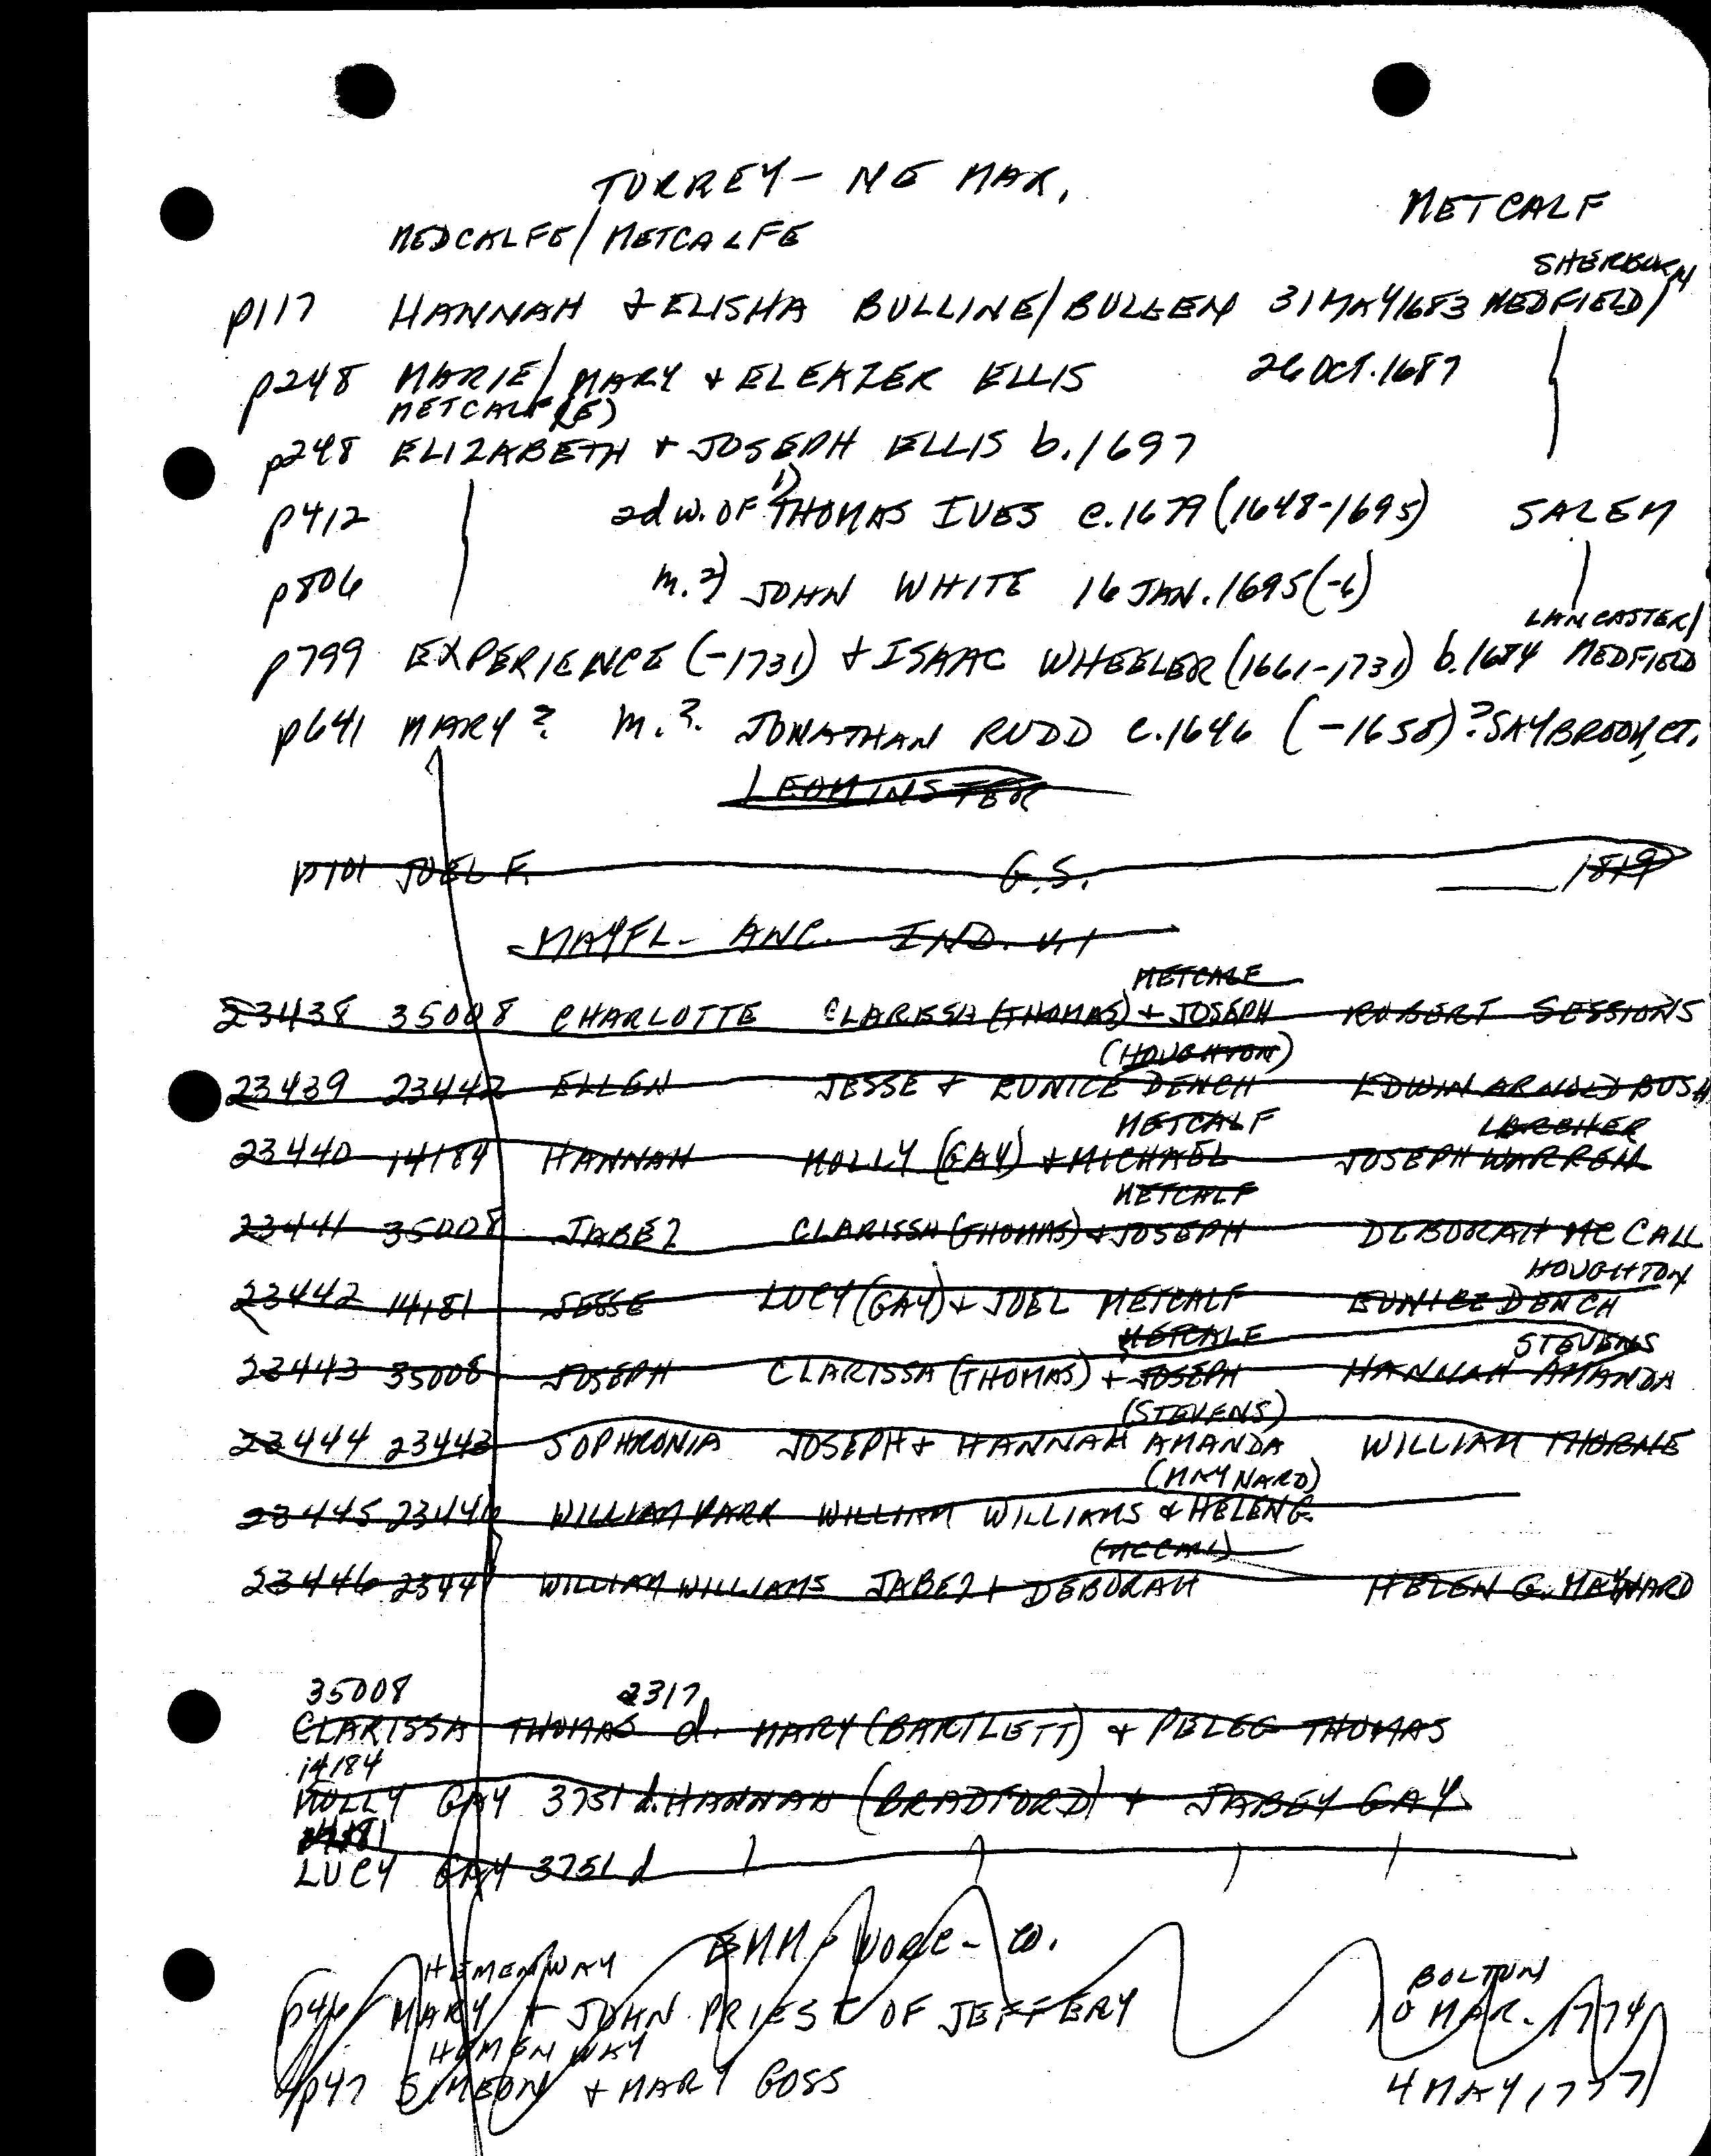 TORREY - NE MAR.
METCALF
MEDCALFE/METCALFE
SHERBURN
p117 HANNAH & ELISHA BULLINE/BULLEN 31 MAY 1683 MEDFIELD/
p248 MARIE/MARY & ELEAZER ELLIS 26 OCT. 1687
METCALF(E)
p248 ELIZABETH & JOSEPH ELLIS b. 1697
p412 2d w. OF 1) THOMAS IVES c. 1679 (1648-1695) SALEM
p806 m. 2) JOHN WHITE 16 JAN. 1695(-6)
LANCASTER/
p799 EXPERIENCE (-1731) & ISAAC WHEELER (1661-1731) b. 1684 MEDFIELD
p641 MARY? m.? JONATHAN RUDD c. 1646 (-1658)? SAYBROOK, CT.
LEOMINSTER
p101 JOEL F. G.S. 1819
MAYFL. ANC. IND. V.1
METCALF
23438 35008 CHARLOTTE CLARISSA (THOMAS) & JOSEPH ROBERT SESSIONS
(HOUGHTON)
23439 23442 ELLEN JESSE & EUNICE DENCH EDWIN ARNOLD BUSH
METCALF LARCHER
23440 14184 HANNAH MOLLY (GAY) & MICHAEL JOSEPH WARREN
METCALF
23441 35008 JABEZ CLARISSA (THOMAS) & JOSEPH DEBORAH MC CALL
HOUGHTON
23442 14181 JESSE LUCY (GAY) & JOEL METCALF EUNICE DENCH
METCALF STEVENS
23443 35008 JOSEPH CLARISSA (THOMAS) & JOSEPH HANNAH AMANDA
(STEVENS)
23444 23443 SOPHRONIA JOSEPH & HANNAH AMANDA WILLIAM THORNE
(MAYNARD)
23445 23446 WILLIAM PARK WILLIAM WILLIAMS & HELEN G.
(MCCALL)
23446 23441 WILLIAM WILLIAMS JABEZ & DEBORAH HELEN G. MAYNARD
35008 2317
CLARISSA THOMAS d. MARY (BARTLETT) & PELEG THOMAS
14184
MOLLY GAY 3751 d. HANNAH (BRADFORD) & JABEY GAY
14181
LUCY GAY 3751 d
EMMP WORC. CO.
HEMENWAY BOLTON
p46 MARY & JOHN PRIEST OF JEFFERY 10 MAR. 1774
HEMENWAY
p47 SIMEON & MARY GOSS 4 MAY 1777